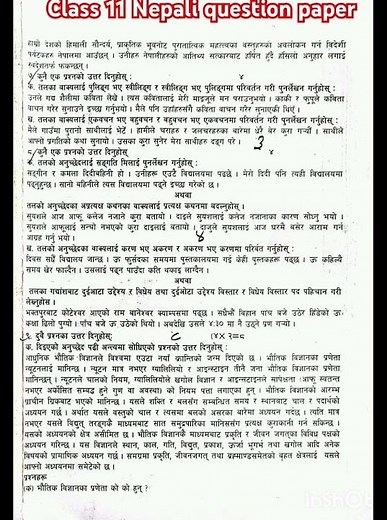 Class 11 Nepali question paper
हाम्रो देशको हिमाली सौन्दर्य, प्राकृतिक भूबनोट पुरातात्विक महत्त्वका वस्तुहरूको अवलोकन गर्न विदेशी
पर्यटकहरू नेपालमा आउँछन् । उनीहरू नेपालीहरूको आतिथ्य सत्कारबाट हर्षित हुँदै हसिलो अनुहार लगाई
स्वदेशतर्फ फर्कन्छन् ।
कुनै एक प्रश्नको उत्तर दिनुहोस् : ४
क. तलका वाक्यलाई पुलिङ्ग भए स्त्रीलिङ्ग र स्त्रीलिङ्ग भए पुलिङ्गमा परिवर्तन गरी पुनर्लेखन गर्नुहोस् :
उनले गद्य शैलीमा कविता लेखे । त्यस कवितालाई मेरी माइजूले मन पराउनुभयो । काकी र फुपूले कविता
वाचन गरेर सुनाउने इच्छा गर्नुभयो । मैले पनि उहाँहरूसँगै कविता वाचन गरेर सुनाएकी थिएँ ।
ख. तलका वाक्यलाई एकवचन भए बहुवचन र बहुवचन भए एकवचनमा परिवर्तन गरी पुनर्लेखन गर्नुहोस् :
मैले गाउँमा पुरानो साथीलाई भेटें । हामीले चराहरू र जलचरहरूका बारेमा धेरै बेर कुरा गऱ्यौं । साथीले
आफ्नो प्रगतिको कथा सुनायो । उसका कुरा सुनेर मेरा साथीहरू दङ्ग परे । 3
८. कुनै एक प्रश्नको उत्तर दिनुहोस्
क. तलको अनुच्छेदलाई सङ्गति मिलाई पुनर्लेखन गर्नुहोस् :
सङ्गीन र कमला दिदीबहिनी हो । उनीहरू एउटै विद्यालयमा पढ्छे । मेरो दिदी पनि त्यही विद्यालयमा
पढ्नुहुन्छ । सानो बहिनीले त्यस विद्यालयमा पढ्ने इच्छा गरेको छ ।
अथवा
तलको अनुच्छेदका अप्रत्यक्ष कथनका वाक्यलाई प्रत्यक्ष कथनमा बदल्नुहोस् ।
सुयशले आज आफू कलेज नजाने कुरा बतायो । दाइले सुयशलाई कलेज नजानाका कारण सोध्नु भयो ।
सुयशले आफूलाई सन्चो नभएको कुरा दाइलाई बतायो । दाजुले सुयशलाई आज घरमै बसेर आराम गर्न
आग्रह गर्नु भयो । ४
ख. तलको अनुच्छेदका वाक्यलाई करण भए अकरण र अकरण भए करणमा परिवर्तन गर्नुहोस् :
दिवस सधैं विद्यालय जान्छ । ऊ फुर्सदका समयमा पुस्तकालयमा गई केही पुस्तकहरू पढ्छ । ऊ कहिल्यै
समय खेर फाल्दैन । उसलाई पढ्न पाउँदा कति थकाइ लाग्दैन ।
अथवा
तलका गद्यांशबाट दुईओटा उद्देश्य र विधेय तथा दुईओटा उद्देश्य विस्तार र विधेय विस्तार पद पहिचान गरी
लेख्नुहोस् ।
भक्तपुरबाट कोटेश्वर आएको राम बानेश्वर क्याम्पसमा पढ्छ । सधैंभरि बिहान पाँच बजे उठेर हिँडेको ऊ
कक्षा ढिलो पुग्यो । पाँच बजे ऊ उठेको थियो । अबदेखि उसले ४:३० मा नै उठ्ने प्रण गऱ्यो ।
९. दुवै प्रश्नका उत्तर दिनुहोस् : (४×२=८)
क. दिइएको अनुच्छेद पढी अन्त्यमा सोधिएको प्रश्नको उत्तर दिनुहोस् :
आधुनिक भौतिक विज्ञानले विश्वमा एउटा नयाँ क्रान्तिको जन्म दिएको छ । भौतिक विज्ञानका प्रणेता
न्यूटनलाई मानिन्छ । न्यूटन मात्र नभएर ग्यालिलियो र आइन्स्टाइन तीनै जना भौतिक विज्ञानका प्रणेता
मानिन्छन् । न्यूटनले चालको नियम, ग्यालिलियोले खगोल विज्ञान र आइन्स्टाइनले सापेक्षता
प्राचीन ग्रिकबाट भएको मानिन्छ । यसले शक्ति र बलसँग सम्बन्धित समय र स्थानबाट चाल र पदार्थको
अध्ययन गर्छ । अर्थात यसले वस्तुको चाल र त्यसमा बलको असरका बारेमा अध्ययन गर्दछ । त्यति मात्र
नभएर यसले विद्युत् तरङ्गकै माध्यमबाट सात समुद्रपारिका मानिससँग प्रत्यक्ष कुराकानी गर्न सकिन्छ ।
यसको अध्ययनको क्षेत्र असीमित छ । भौतिक विज्ञानकै माध्यमबाट प्रकृति र जीवन जगत्का विविध पक्षको
अध्ययन गरिन्छ । यस विज्ञानले स्थान, काल, गति, विद्युत, प्रकाश, ऊर्जा भूगर्भ तथा खगोल आदि अनेक
विषयको प्रामाणिक अध्ययन गर्छ । समग्रमा प्रकृति, जीवनजगत् तथा ब्रह्माण्डसमेतको बृहत क्षेत्रलाई यसले
आफ्नो अध्ययनमा समेटेको छ ।
प्रश्नहरू
(क) भौतिक विज्ञानका प्रणेता को को हुन् ?